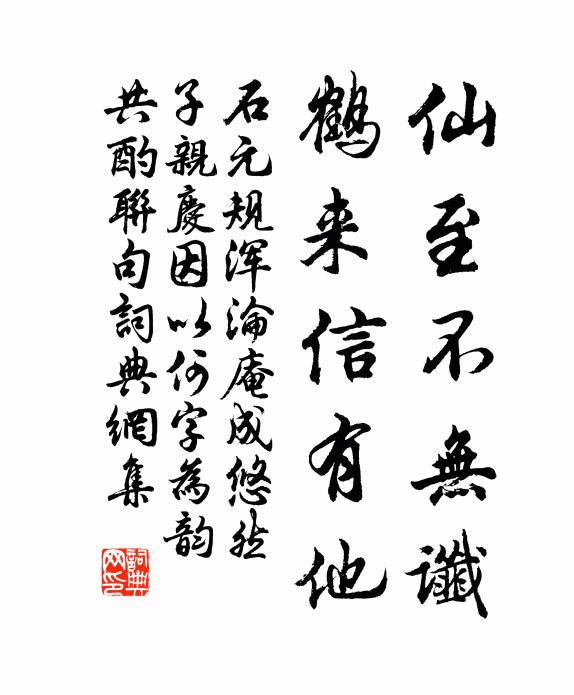 仙至不無讖
鶴来信有他
石元規渾淪庵成悠然
子親慶因以何字為韵
共酌聯句詞典網集
詞典网印